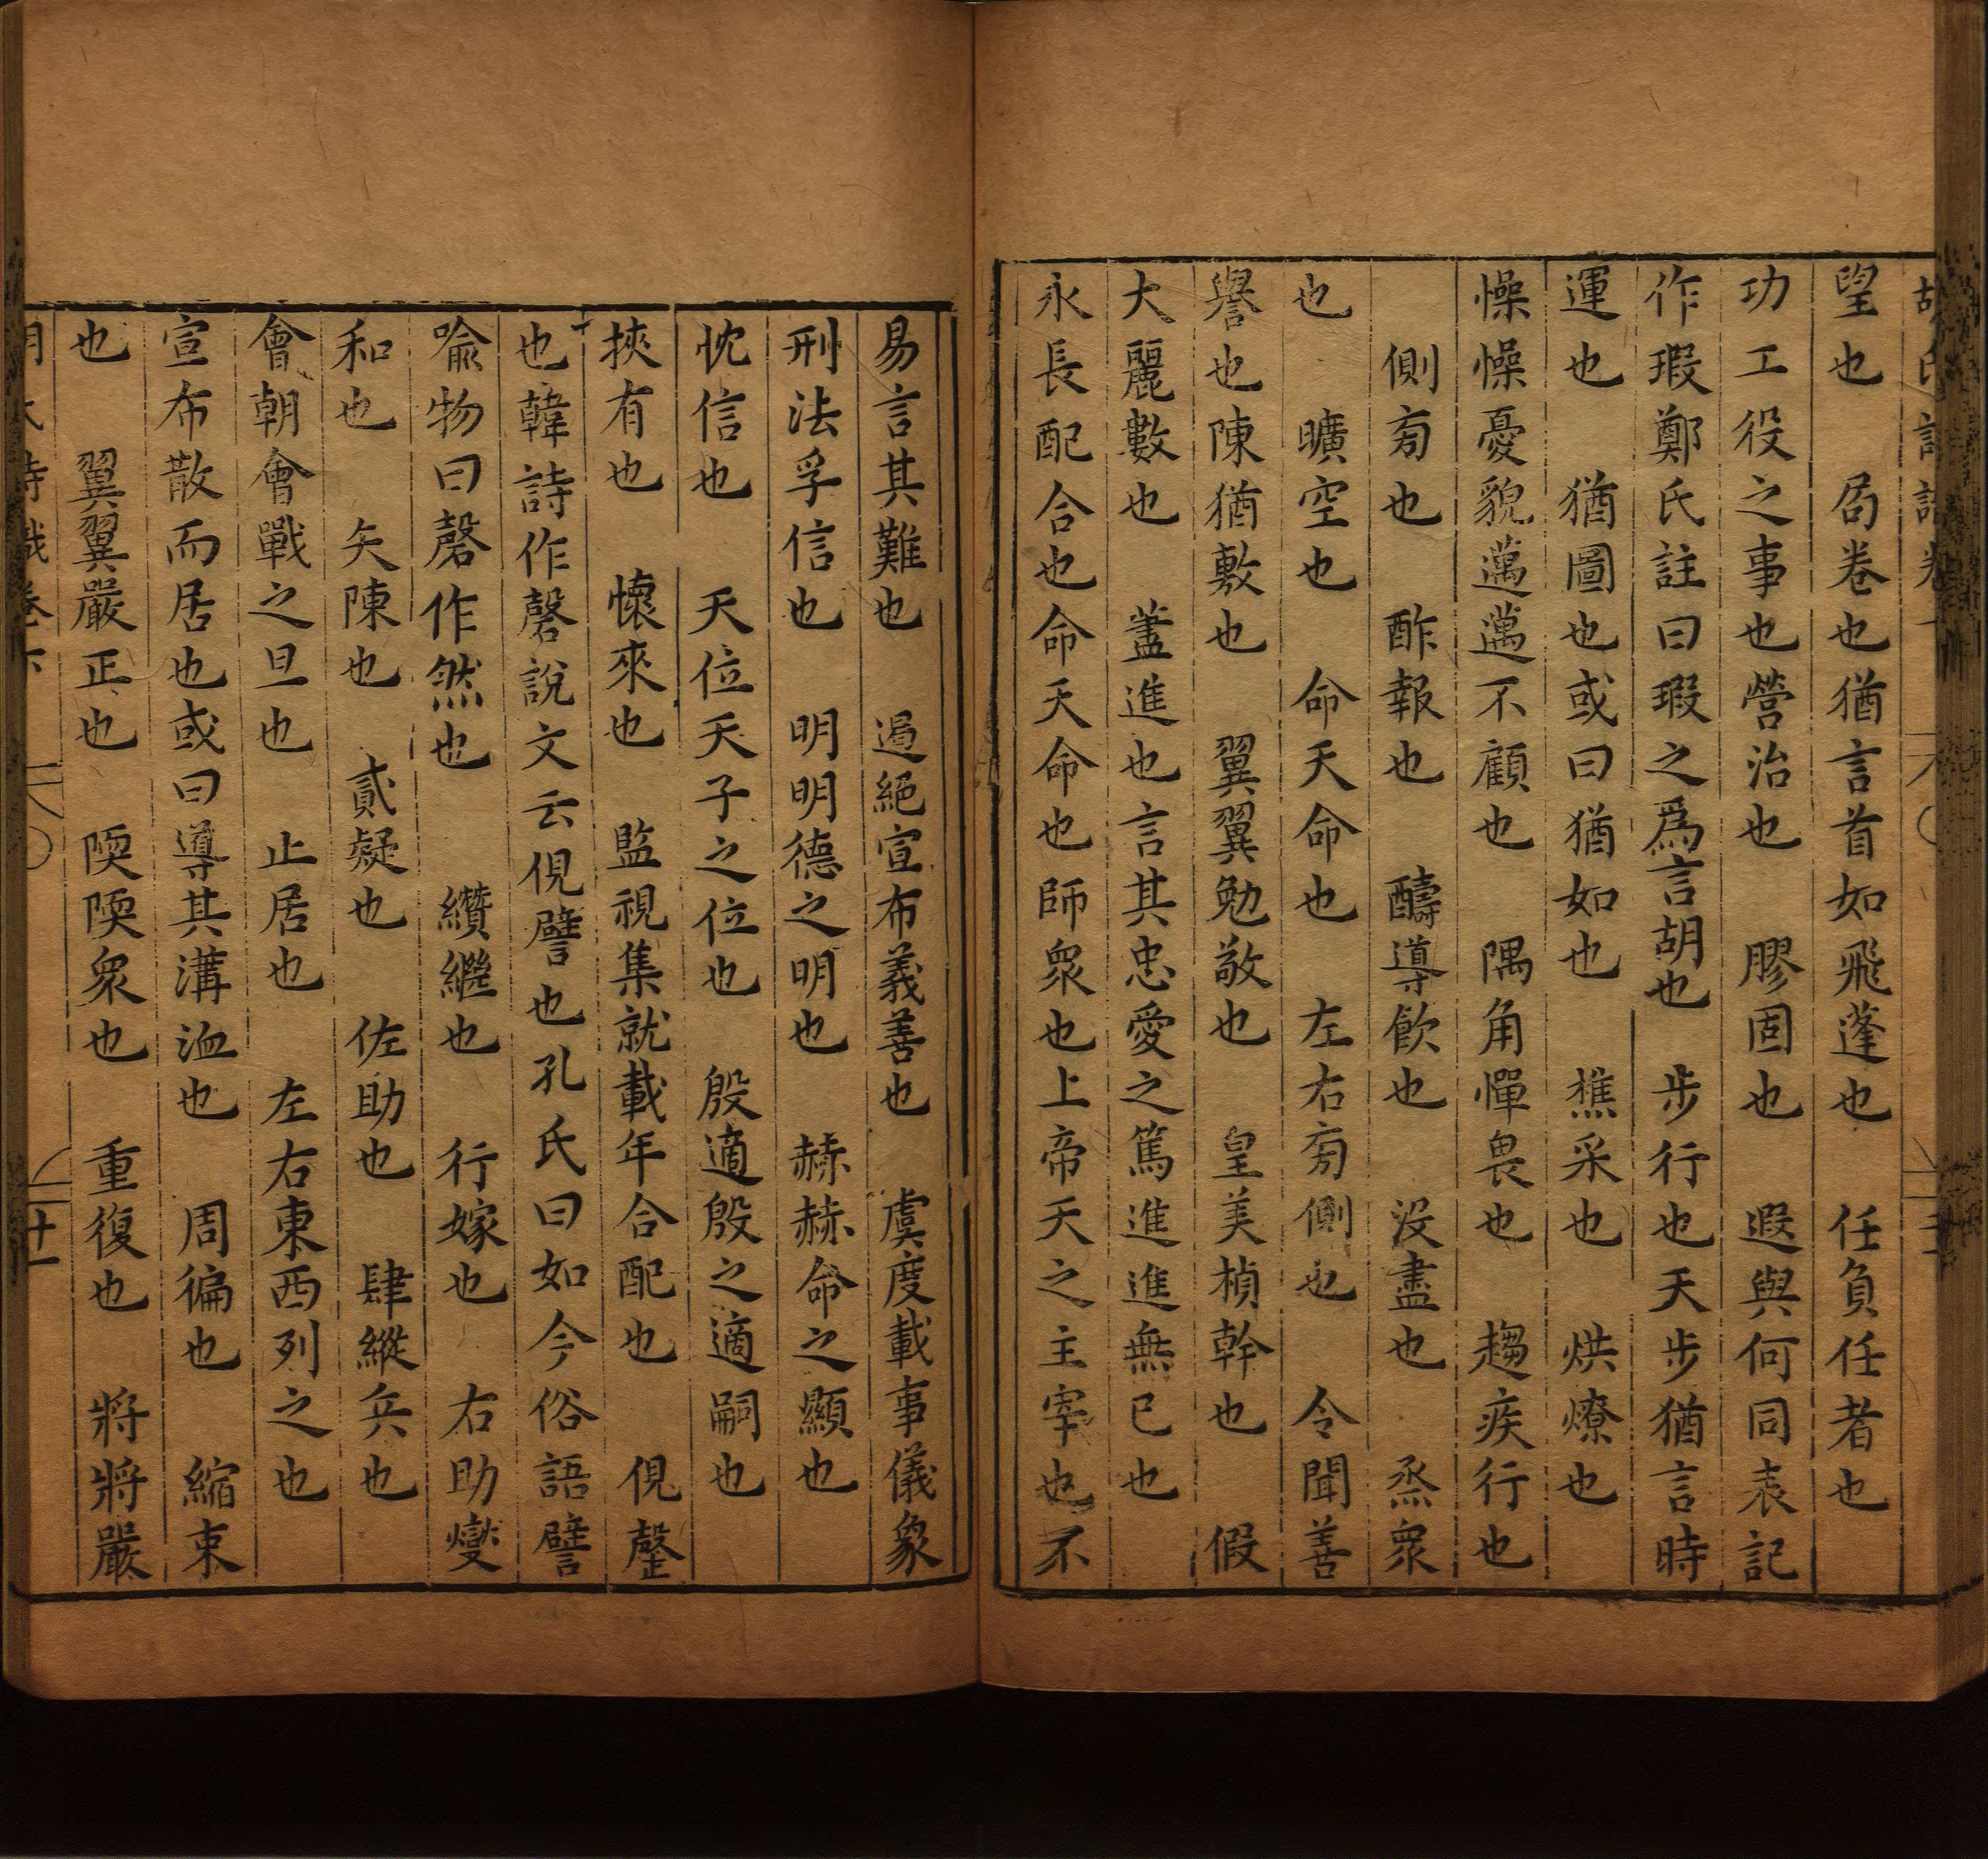 望也　局卷也猶言首如飛蓬也　任負任者也
功工役之事也營治也　膠固也　遐與何同表記
作瑕鄭氏註曰瑕之為言胡也　步行也天步猶言時
運也　猶圖也或曰猶如也　樵采也　烘燎也
懆懆憂貌邁邁不顧也　隅角憚畏也　趨疾行也
側㫄也　酢報也　醻導飲也　没盡也　烝衆
也　曠空也　命天命也　左右㫄側也　令聞善
譽也陳猶敷也　翼翼勉敬也　皇美楨幹也　假
大麗數也　藎進也言其忠愛之篤進進無已也
永長配合也命天命也師衆也上帝天之主宰也不
易言其難也　遏絕宣布義善也　虞度載事儀象
刑法孚信也　明明德之明也　赫赫命之顯也
忱信也　天位天子之位也　殷適殷之適嗣也
挾有也　懷來也　監視集就載年合配也　俔磬
也韓詩作磬說文云俔譬也孔氏曰如今俗語譬
喻物曰磬作然也　纘繼也　行嫁也　右助燮
和也　矢陳也　貳疑也　佐助也　肆縱兵也
會朝會戰之旦也　止居也　左右東西列之也
宣布散而居也或曰導其溝洫也　周徧也　縮束
也　翼翼嚴正也　陾陾衆也　重復也　將將嚴
十一